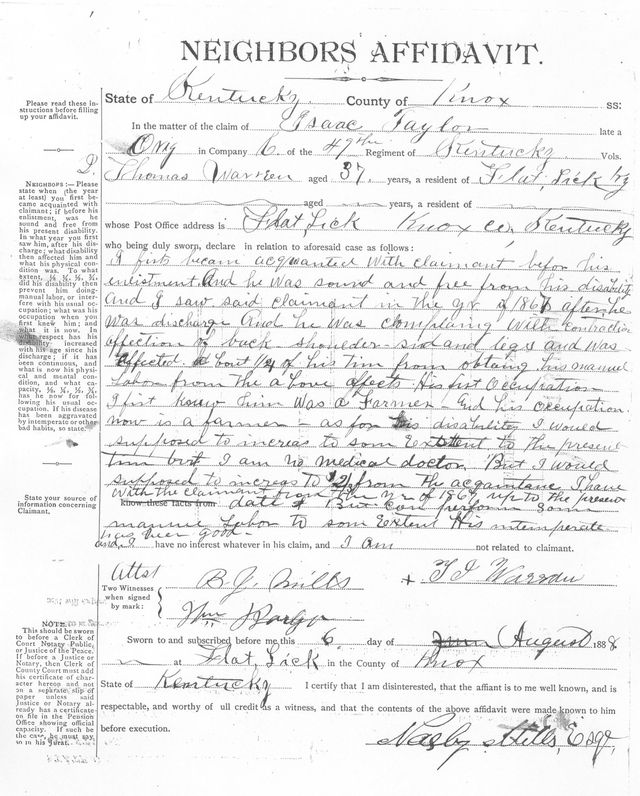 NEIGHBORS AFFIDAVIT.
State of Kentucky. County of Knox ss:
In the matter of the claim of Isaac Taylor late a
Orig in Company K. of the 49th Regiment of Kentucky Vols.
Thomas Warren aged 37. years, a resident of Flat, Lick Ky
aged years, a resident of
whose Post Office address is Flat, Lick Knox co, Kentucky
who being duly sworn, declare in relation to aforesaid case as follows:
I first becam acquanted With claimant befor his
enlistment And he was sound and free from his disability
And I saw said claimant in the yr of 186 after he
was discharge And he was complening with contraction
affection of back shoulder - sid and legs and was
affected a bout 1/4 of his tim from obtaing his manuel
Labor from the a bove affects His first Occupation
I first know him was a Farmer - And his occupation
now is a farmer - as for his disability I would
supposed to increas to som Extent to the present
tim but I am no medical doctor. But I would
supposed to increas to 1/2 from the acquaintanc I have
With the claimant from the yr of 186 up to the present
know these facts from date & But can perform som
manuel Labor to som Extent His intemperate
has been good -
and I have no interest whatever in his claim, and I am not related to claimant.
Attst
Two Witnesses
when signed
by mark:
B. J. Mills
+ T J Warren
Wm
Sworn to and subscribed before me this 6 day of August 1888
at Flat, Lick in the County of Knox
State of Kentucky I certify that I am disinterested, that the affiant is to me well known, and is
respectable, and worthy of ull credit as a witness, and that the contents of the above affidavit were made known to him
before execution.
Mills, Esqr.
Please read these in-
structions before filling
up your affidavit.
NEIGHBORS :— Please
state when (the year
at least) you first be-
came acquainted with
claimant; if before his
enlistment, was he
sound and free from
his present disability.
In what year you first
saw him, after his dis-
charge; what disability
then affected him and
what his physical con-
dition was. To what
extent, ¼, ½, ¾,
did his disability then
prevent him doing-
manual labor, or inter-
fere with his usual oc-
cupation; what was his
occupation when you
first knew him; and
what it is now. In
what respect has his
disability increased
with his age since his
discharge; if it has
been continuous, and
what is now his physi-
cal and mental con-
dition, and what ca-
pacity, ¼, ½, ¾,
has he now for fol-
lowing his usual oc-
cupation. If his disease
has been aggravated
by intemperate or other
bad habits, so state.
State your source of
information concerning
Claimant.
NOTE.
This should be sworn
to before a Clerk of
Court Notary Public,
or Justice of the Peace.
If before a Justice or
Notary, then Clerk of
County Court must add
his certificate of char-
acter hereon and not
on a separate slip of
paper unless said
Justice or Notary al-
ready has a certificate
on file in the Pension
Office showing official
capacity. If such be
the case, he must say
so in his jurat.